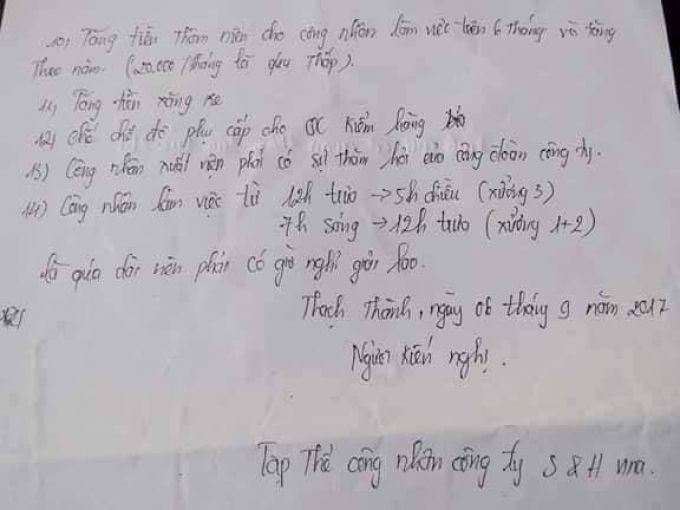 10, Tăng tiền thâm niên cho công nhân làm việc trên 6 tháng và tăng
Theo năm. (20.000 / tháng là qúa Thấp).
11, Tăng tiền xăng xe
12) chế độ phụ cấp cho QC kiểm hàng
13) Công nhân xuất viện phải có sự thăm hỏi của công đoàn công ty.
14) Công nhân làm việc từ 12h trưa → 5h chiều (xưởng 3)
7h sáng → 12h trưa (xưởng 1+2)
là qúa dài nên phải có giờ nghỉ giải lao.
Thạch Thành, ngày 06 tháng 9 năm 2017
Người kiến nghị.
Tập Thể công nhân công ty S & H vina.